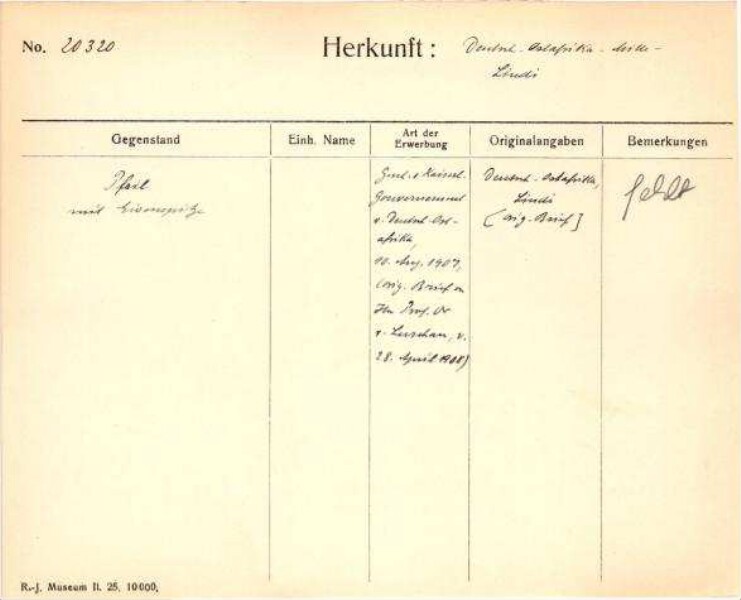 No. 20320
Herkunft: Deutsch-Ostafrika -
Lindi
Gegenstand
Einh. Name
Art der
Erwerbung
Originalangaben
Bemerkungen
Pfeil
mit Eisenspitze
v. Kaiserl.
Gouvernement
v. Deutsch-Ost-
afrika,
10. Aug. 1907,
(orig. Brief an
Hn Prof. Dr
v. Luschan, v.
28. April 1908)
Deutsch-Ostafrika,
Lindi
[orig. Brief]
fehlt
R.-J. Museum II. 25. 10000.